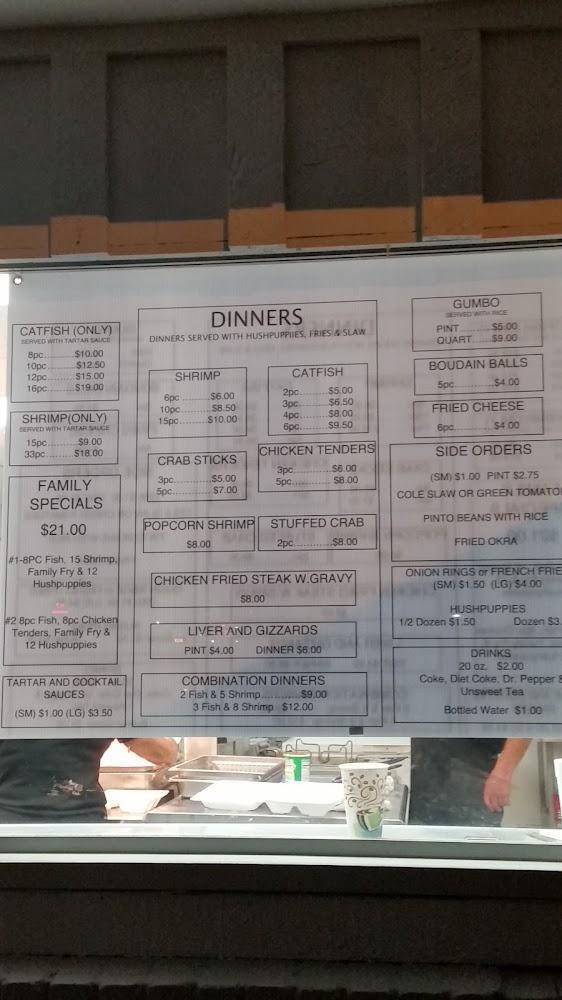 CATFISH (ONLY)
SERVED WITH TARTAR SAUCE
8pc..........$10.00
10pc..........$12.50
12pc..........$15.00
16pc..........$19.00
SHRIMP(ONLY)
SERVED WITH TARTAR SAUCE
15pc..........$9.00
33pc..........$18.00
FAMILY
SPECIALS
$21.00
#1-8PC Fish, 15 Shrimp,
Family Fry & 12
Hushpuppies
#2 8pc Fish, 8pc Chicken
Tenders, Family Fry &
12 Hushpuppies
TARTAR AND COCKTAIL
SAUCES
(SM) $1.00 (LG) $3.50
DINNERS
DINNERS SERVED WITH HUSHPUPPIIES, FRIES & SLAW
SHRIMP
6pc..........$6.00
10pc..........$8.50
15pc..........$10.00
CATFISH
2pc..........$5.00
3pc..........$6.50
4pc..........$8.00
6pc..........$9.50
CRAB STICKS
3pc..........$5.00
5pc..........$7.00
CHICKEN TENDERS
3pc..........$6.00
5pc..........$8.00
POPCORN SHRIMP
$8.00
STUFFED CRAB
2pc..........$8.00
CHICKEN FRIED STEAK W.GRAVY
$8.00
LIVER AND GIZZARDS
PINT $4.00 DINNER $6.00
COMBINATION DINNERS
2 Fish & 5 Shrimp............$9.00
3 Fish & 8 Shrimp $12.00
GUMBO
SERVED WITH RICE
PINT..........$5.00
QUART..........$9.00
BOUDAIN BALLS
5pc..........$4.00
FRIED CHEESE
6pc..........$4.00
SIDE ORDERS
(SM) $1.00 PINT $2.75
COLE SLAW OR GREEN TOMATO
PINTO BEANS WITH RICE
FRIED OKRA
ONION RINGS or FRENCH FRIE
(SM) $1.50 (LG) $4.00
HUSHPUPPIES
1/2 Dozen $1.50 Dozen $3.
DRINKS
20 oz. $2.00
Coke, Diet Coke, Dr. Pepper &
Unsweet Tea
Bottled Water $1.00